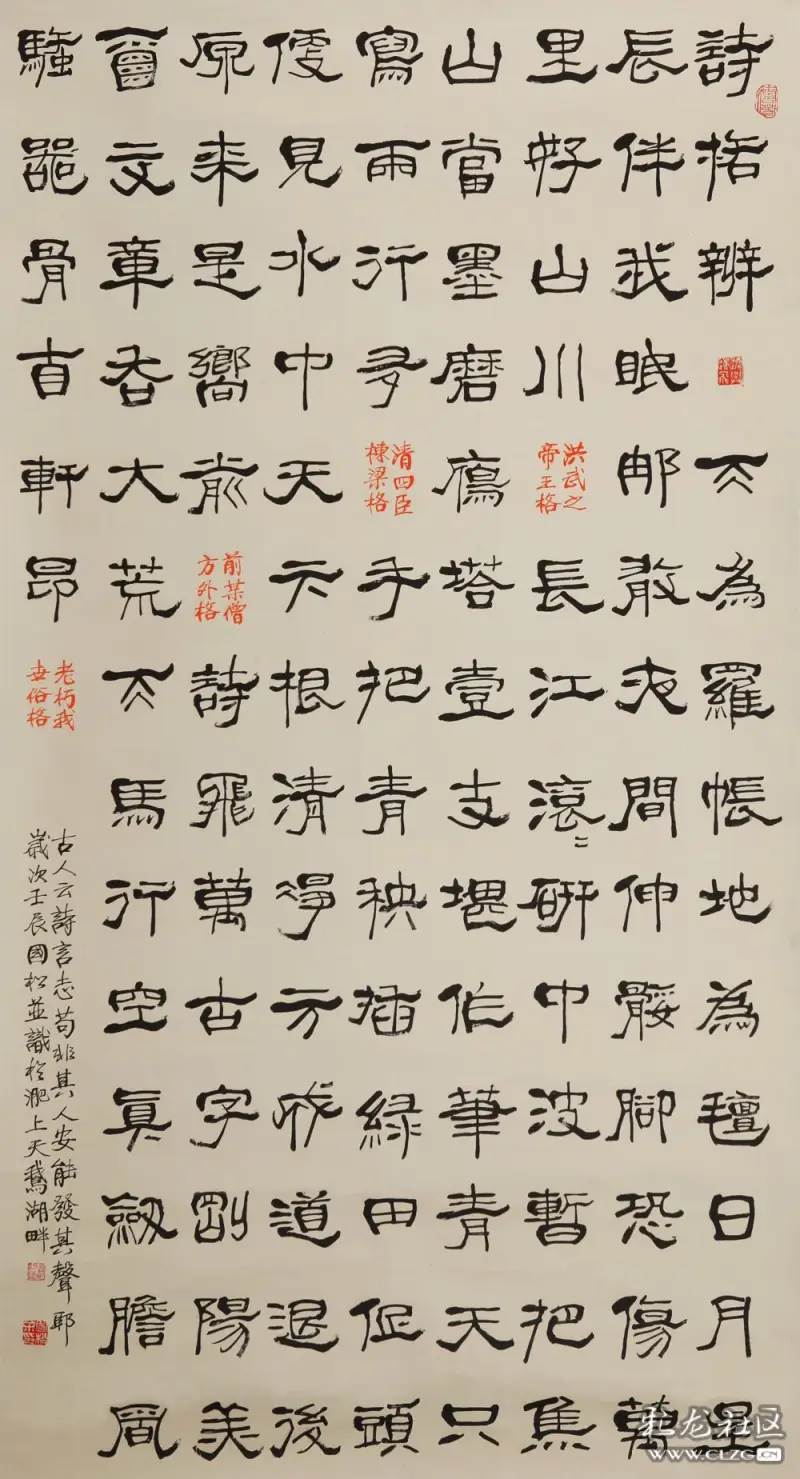 詩格辨天為羅帳地為氊日月星
辰伴我眠那敢夜間伸骽脚恐傷萬
里好山川
洪武之
帝王格
長江滾〻研中波暫把焦
山當墨磨鴈塔壹支堪作筆青天只
寫兩行多
清四臣
棟梁格
手把青秧插綠田低頭
便見水中天六根清淨方成道退後
原来是嚮前
前某僧
方外格
詩飛萬古字剛陽美
文章吞大荒天馬行空真劍膽風
騷骨自軒昂
老朽我
世俗格
古人云詩言志苟非其人安能發其聲耶
歲次壬辰國松並識於淝上天鵝湖畔
化龙社区
WWW.CLZG.CN